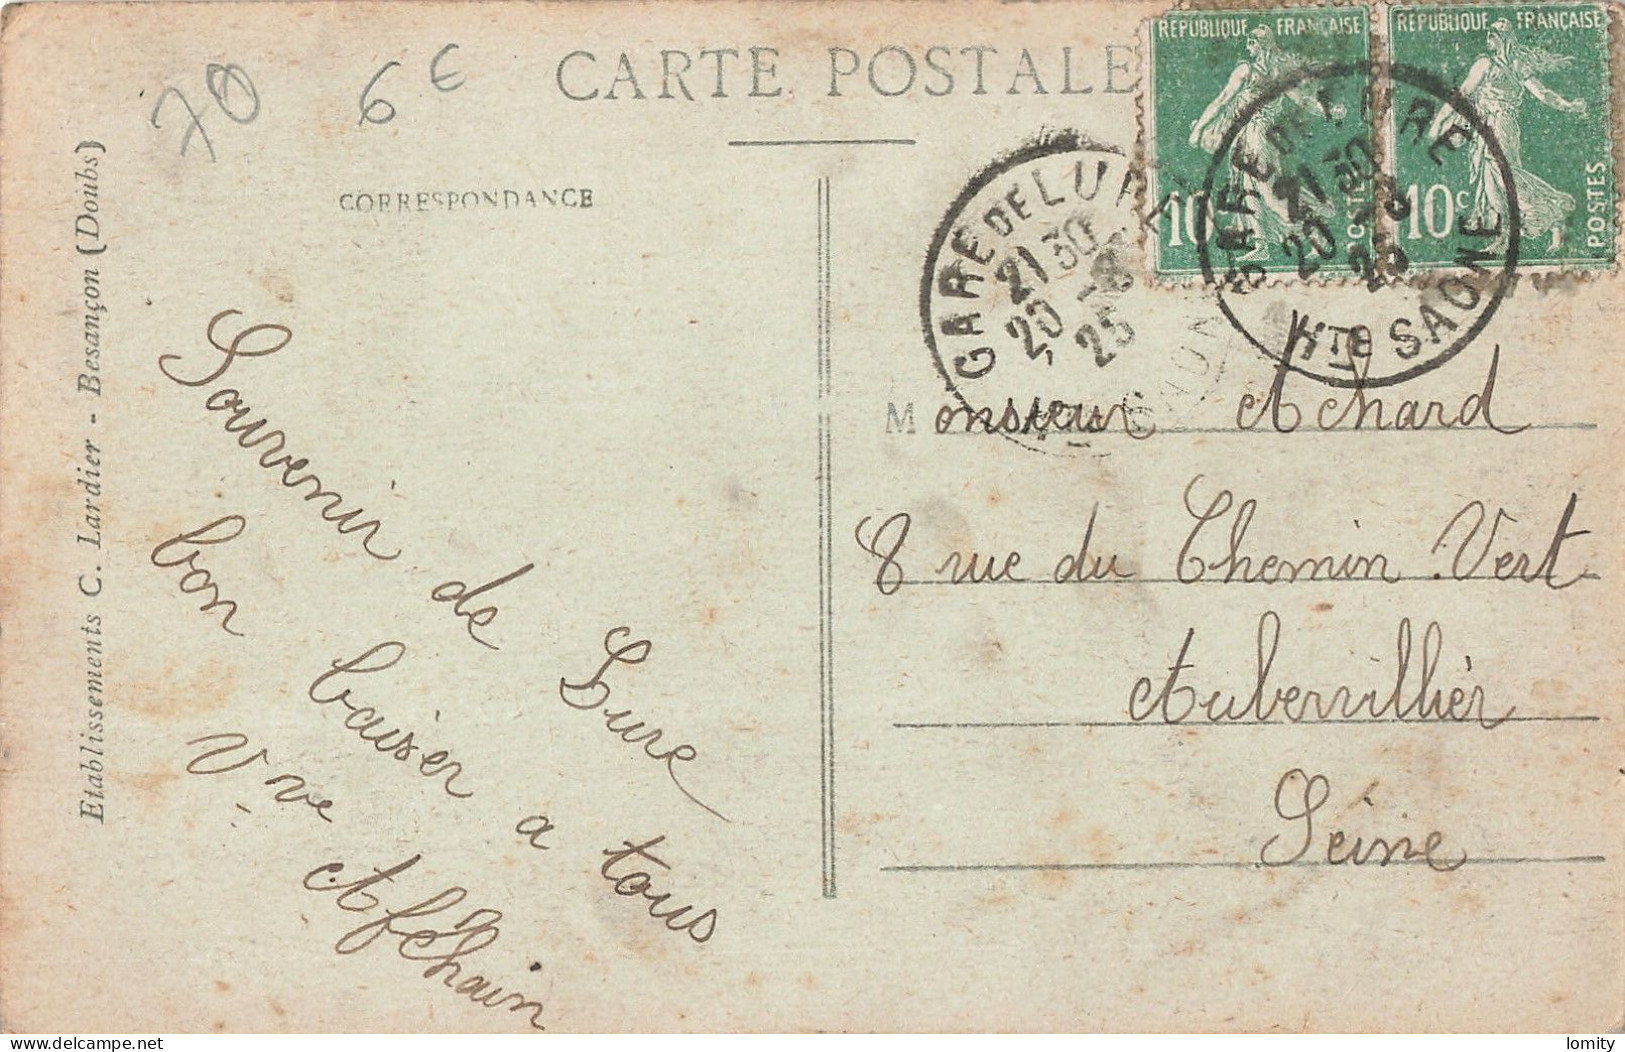 70
6€
CARTE POSTALE
CORRESPONDANCE
Etablissements C. Lardier - Besançon (Doubs)
Souvenir de Lure
bon baiser a tous
Vve
RÉPUBLIQUE FRANÇAISE
10
POSTES
RÉPUBLIQUE FRANÇAISE
10c
POSTES
GARE DE LURE
21 30
20 -8
25
GARE DE LURE
21 30
20 -8
25
HTE SAONE
Monsieur Achard
8 rue du Chemin Vert
Aubervillièr
Séine
lomity